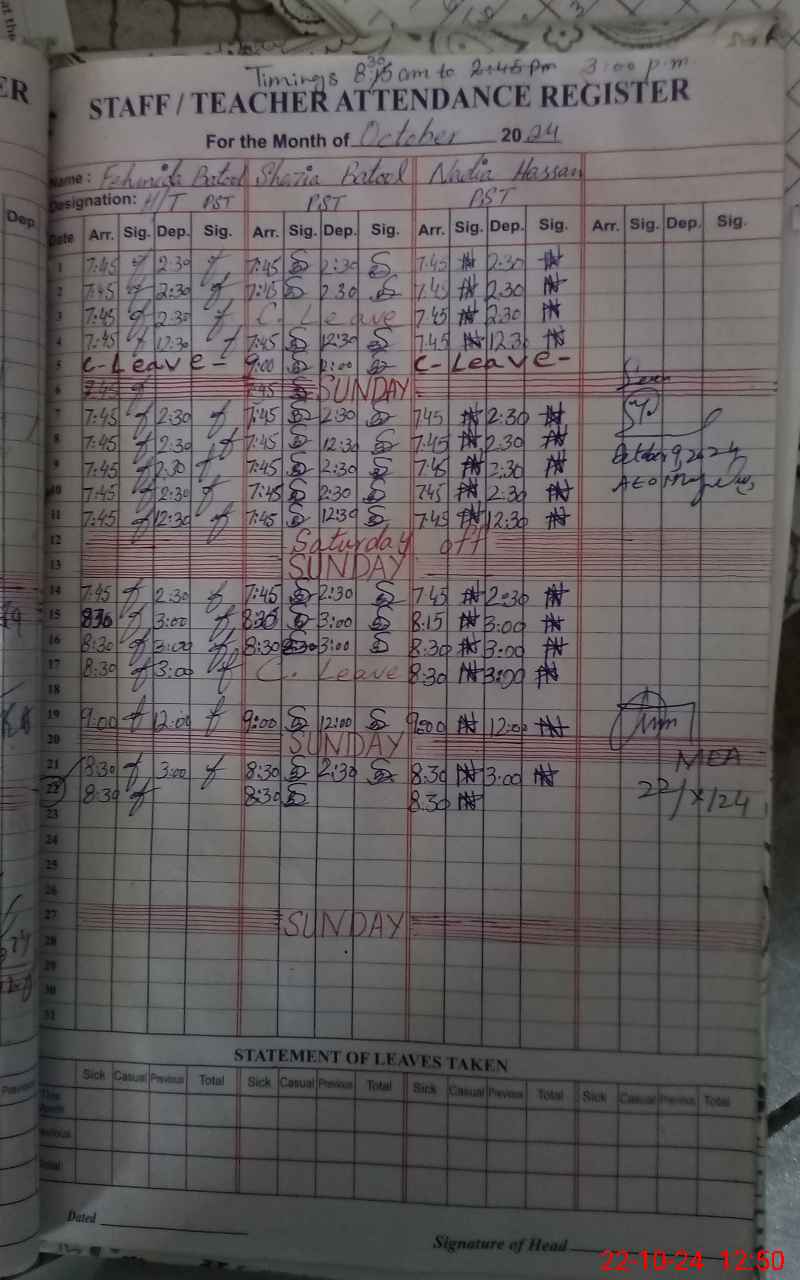 Timings 8:30 am to 2:45 pm 3:00 p.m.
STAFF / TEACHER ATTENDANCE REGISTER
For the Month of October 2024
Name: Fehmida Batool Shazia Batool Nadia Hassan
Designation: H/T PST PST PST
Date Arr. Sig. Dep. Sig. Arr. Sig. Dep. Sig. Arr. Sig. Dep. Sig. Arr. Sig. Dep. Sig.
1 7:45 2:30 7:45 2:30 7:45 2:30
2 7:45 2:30 7:45 2:30 7:45 2:30
3 7:45 2:30 C. Leave 7:45 2:30
4 7:45 12:30 7:45 12:30 7:45 12:30
5 C-Leave- 9:00 C-Leave-
6 7:45 7:45 SUNDAY
7 7:45 2:30 7:45 2:30 7:45 2:30
8 7:45 2:30 7:45 12:30 7:45 2:30
9 7:45 2:30 7:45 2:30 7:45 2:30
October 9, 2024
10 7:45 2:30 7:45 2:30 7:45 2:30
AEO
11 7:45 12:30 7:45 12:30 7:45 12:30
12 Saturday off
13 SUNDAY
14 7:45 2:30 7:45 2:30 7:45 2:30
15 830 3:00 8:30 3:00 8:15 3:00
16 8:30 3:00 8:30 3:00 8:30 3:00
17 8:30 3:00 C. Leave 8:30 3:00
18
19 9:00 12:00 9:00 12:00 9:00 12:00
20 SUNDAY
MEA
21 8:30 3:00 8:30 2:30 8:30 3:00
22 8:30 8:30 8:30
22/X/24
23
24
25
26
27 SUNDAY
28
29
30
31
STATEMENT OF LEAVES TAKEN
Sick Casual Previous Total Sick Casual Previous Total Sick Casual Previous Total Sick Casual Previous Total
This Month
Previous
Total
Dated
Signature of Head
22-10-24 12:50